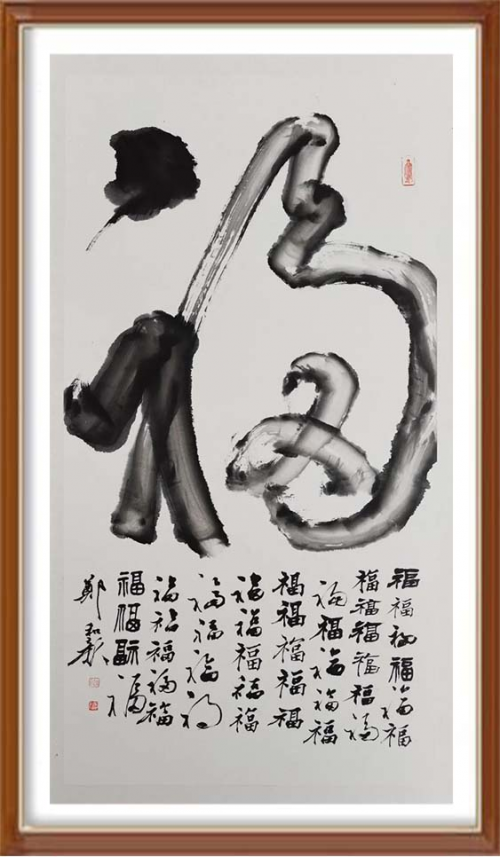 福
福福福福福福
福福福福福福
福福福福福
福福福福福
福福福福福
福福福福
福福福福福
福福福福
鄭